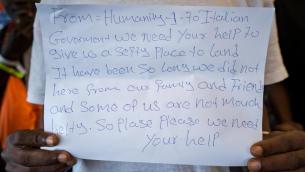 From = Humanity-1. To Italian
Goverment we need Your help to
give us a Sefty Place to land
It have been So long we did not
here from our Family and Friend
and Some of us are not mouch
helty. So Plase Please we need
Your help